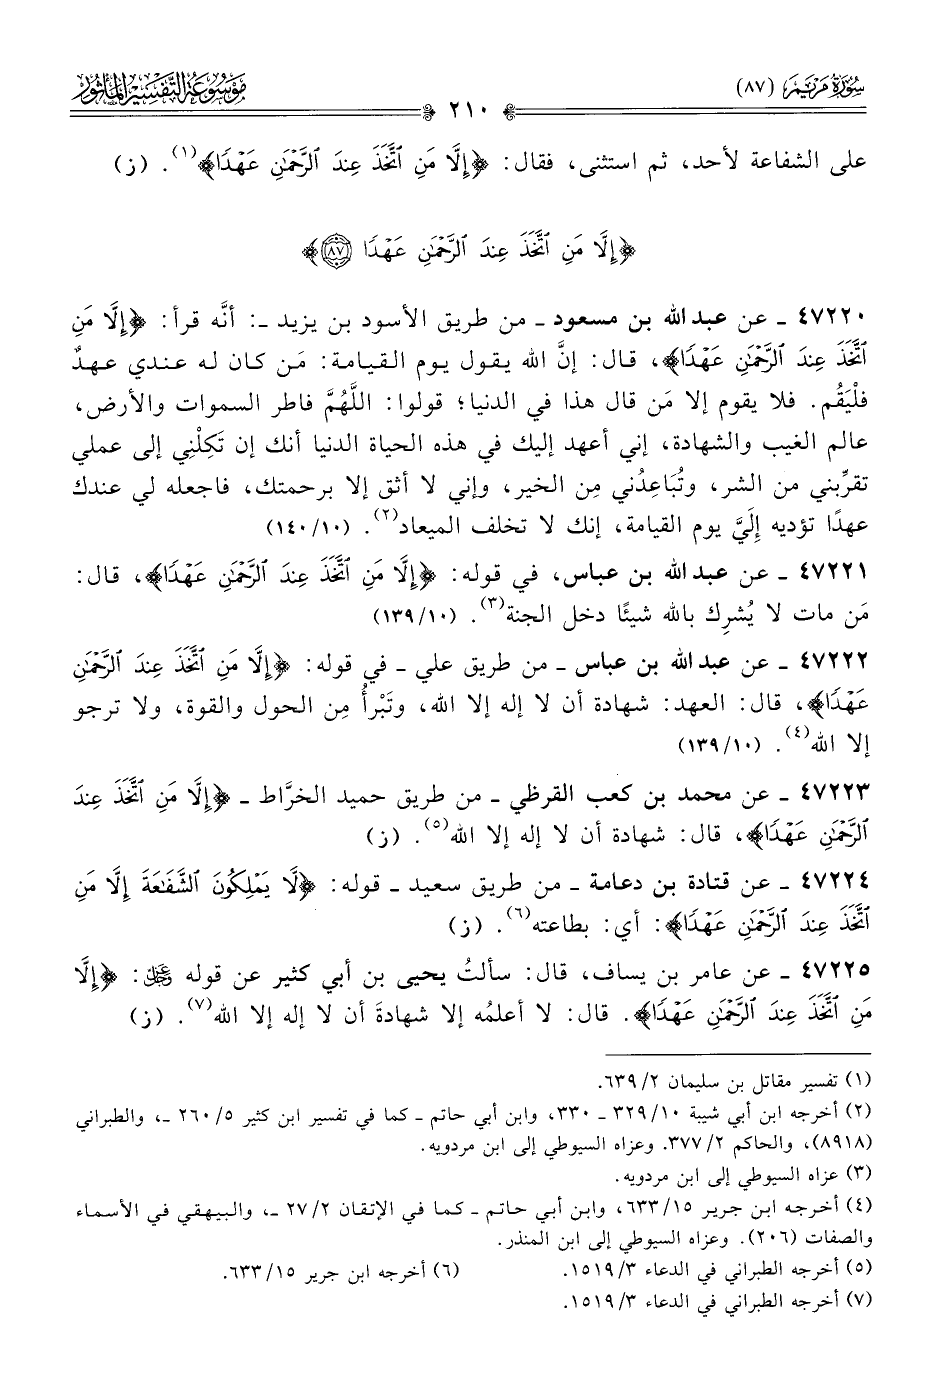 سُورَةُ مَرْيَمَ (٨٧)
٢١٠
مَوْسُوعَةُ التَّفْسِيرِ المَأْثُورِ
على الشفاعة لأحد، ثم استثنى، فقال: ﴿إِلَّا مَنِ ٱتَّخَذَ عِندَ ٱلرَّحْمَٰنِ عَهْدًا﴾(١). (ز)
﴿إِلَّا مَنِ ٱتَّخَذَ عِندَ ٱلرَّحْمَٰنِ عَهْدًا ٨٧﴾
٤٧٢٢٠ ـ عن عبد الله بن مسعود ـ من طريق الأسود بن يزيد ـ: أنَّه قرأ: ﴿إِلَّا مَنِ
ٱتَّخَذَ عِندَ ٱلرَّحْمَٰنِ عَهْدًا﴾، قال: إنَّ الله يقول يوم القيامة: مَن كان له عندي عهدٌ
فلْيَقُم. فلا يقوم إلا مَن قال هذا في الدنيا؛ قولوا: اللَّهُمَّ فاطر السموات والأرض،
عالم الغيب والشهادة، إني أعهد إليك في هذه الحياة الدنيا أنك إن تَكِلْنِي إلى عملي
تقرِّبني من الشر، وتُبَاعِدُني مِن الخير، وإني لا أثق إلا برحمتك، فاجعله لي عندك
عهدًا تؤديه إِلَيَّ يوم القيامة، إنك لا تخلف الميعاد(٢). (١٤٠/١٠)
٤٧٢٢١ ـ عن عبد الله بن عباس، في قوله: ﴿إِلَّا مَنِ ٱتَّخَذَ عِندَ ٱلرَّحْمَٰنِ عَهْدًا﴾، قال:
مَن مات لا يُشرِك بالله شيئًا دخل الجنة(٣). (١٣٩/١٠)
٤٧٢٢٢ ـ عن عبد الله بن عباس ـ من طريق علي ـ في قوله: ﴿إِلَّا مَنِ ٱتَّخَذَ عِندَ ٱلرَّحْمَٰنِ
عَهْدًا﴾، قال: العهد: شهادة أن لا إله إلا الله، وتَبْرأُ مِن الحول والقوة، ولا ترجو
إلا الله(٤). (١٣٩/١٠)
٤٧٢٢٣ ـ عن محمد بن كعب القرظي ـ من طريق حميد الخرَّاط ـ ﴿إِلَّا مَنِ ٱتَّخَذَ عِندَ
ٱلرَّحْمَٰنِ عَهْدًا﴾، قال: شهادة أن لا إله إلا الله(٥). (ز)
٤٧٢٢٤ ـ عن قتادة بن دعامة ـ من طريق سعيد ـ قوله: ﴿لَّا يَمْلِكُونَ ٱلشَّفَٰعَةَ إِلَّا مَنِ
ٱتَّخَذَ عِندَ ٱلرَّحْمَٰنِ عَهْدًا﴾: أي: بطاعته(٦). (ز)
٤٧٢٢٥ ـ عن عامر بن يساف، قال: سألتُ يحيى بن أبي كثير عن قوله عز وجل: ﴿إِلَّا
مَنِ ٱتَّخَذَ عِندَ ٱلرَّحْمَٰنِ عَهْدًا﴾. قال: لا أعلمُه إلا شهادةَ أن لا إله إلا الله(٧). (ز)
(١) تفسير مقاتل بن سليمان ٦٣٩/٢.
(٢) أخرجه ابن أبي شيبة ٣٢٩/١٠ ـ ٣٣٠، وابن أبي حاتم ـ كما في تفسير ابن كثير ٢٦٠/٥ ـ، والطبراني
(٨٩١٨)، والحاكم ٣٧٧/٢. وعزاه السيوطي إلى ابن مردويه.
(٣) عزاه السيوطي إلى ابن مردويه.
(٤) أخرجه ابن جرير ٦٣٣/١٥، وابن أبي حاتم ـ كما في الإتقان ٢٧/٢ ـ، والبيهقي في الأسماء
والصفات (٢٠٦). وعزاه السيوطي إلى ابن المنذر.
(٥) أخرجه الطبراني في الدعاء ١٥١٩/٣. (٦) أخرجه ابن جرير ٦٣٣/١٥.
(٧) أخرجه الطبراني في الدعاء ١٥١٩/٣.